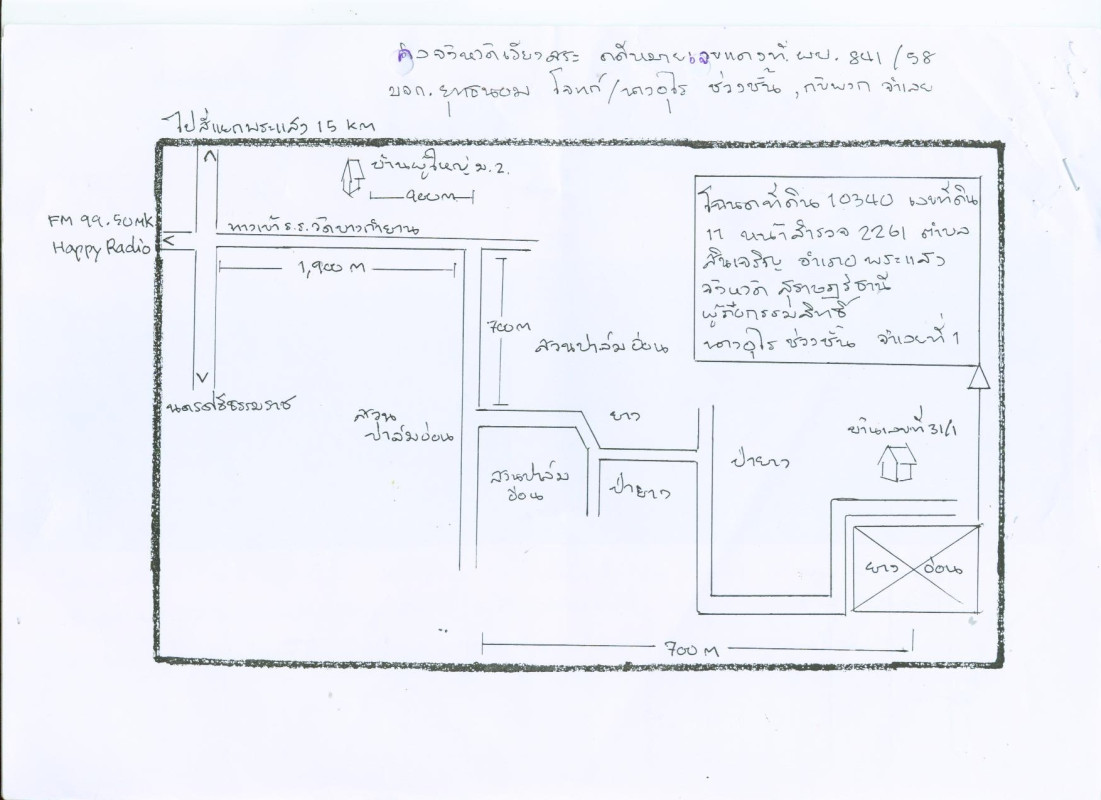 ศาลจังหวัดเวียงสระ คดีหมายเลขแดงที่ ผบ. 841/58
บจก. ยูทธนยม โจทก์/นางอุไร ช่วงชั้น, กับพวก จำเลย
ไปสี่แยกพระแสง 15 KM
บ้านผู้ใหญ่ ม.2.
900 m
FM 99.50MK
Happy Radio
ทางเข้า ร.ร. วัดบางกำยาน
1,900 m
โฉนดที่ดิน 10340 เลขที่ดิน
11 หน้าสำรวจ 2261 ตำบล
สินเจริญ อำเภอ พระแสง
จังหวัด สุราษฎร์ธานี
ผู้ถือกรรมสิทธิ์
นางอุไร ช่วงชั้น จำเลยที่ 1
700 m
สวนปาล์ม อ่อน
นครศรีธรรมราช
สวน
ปาล์มอ่อน
ยาง
บ้านเลขที่ 31/1
ป่ายาง
สวนปาล์ม
อ่อน
ป่ายาง
ยาง อ่อน
700 m